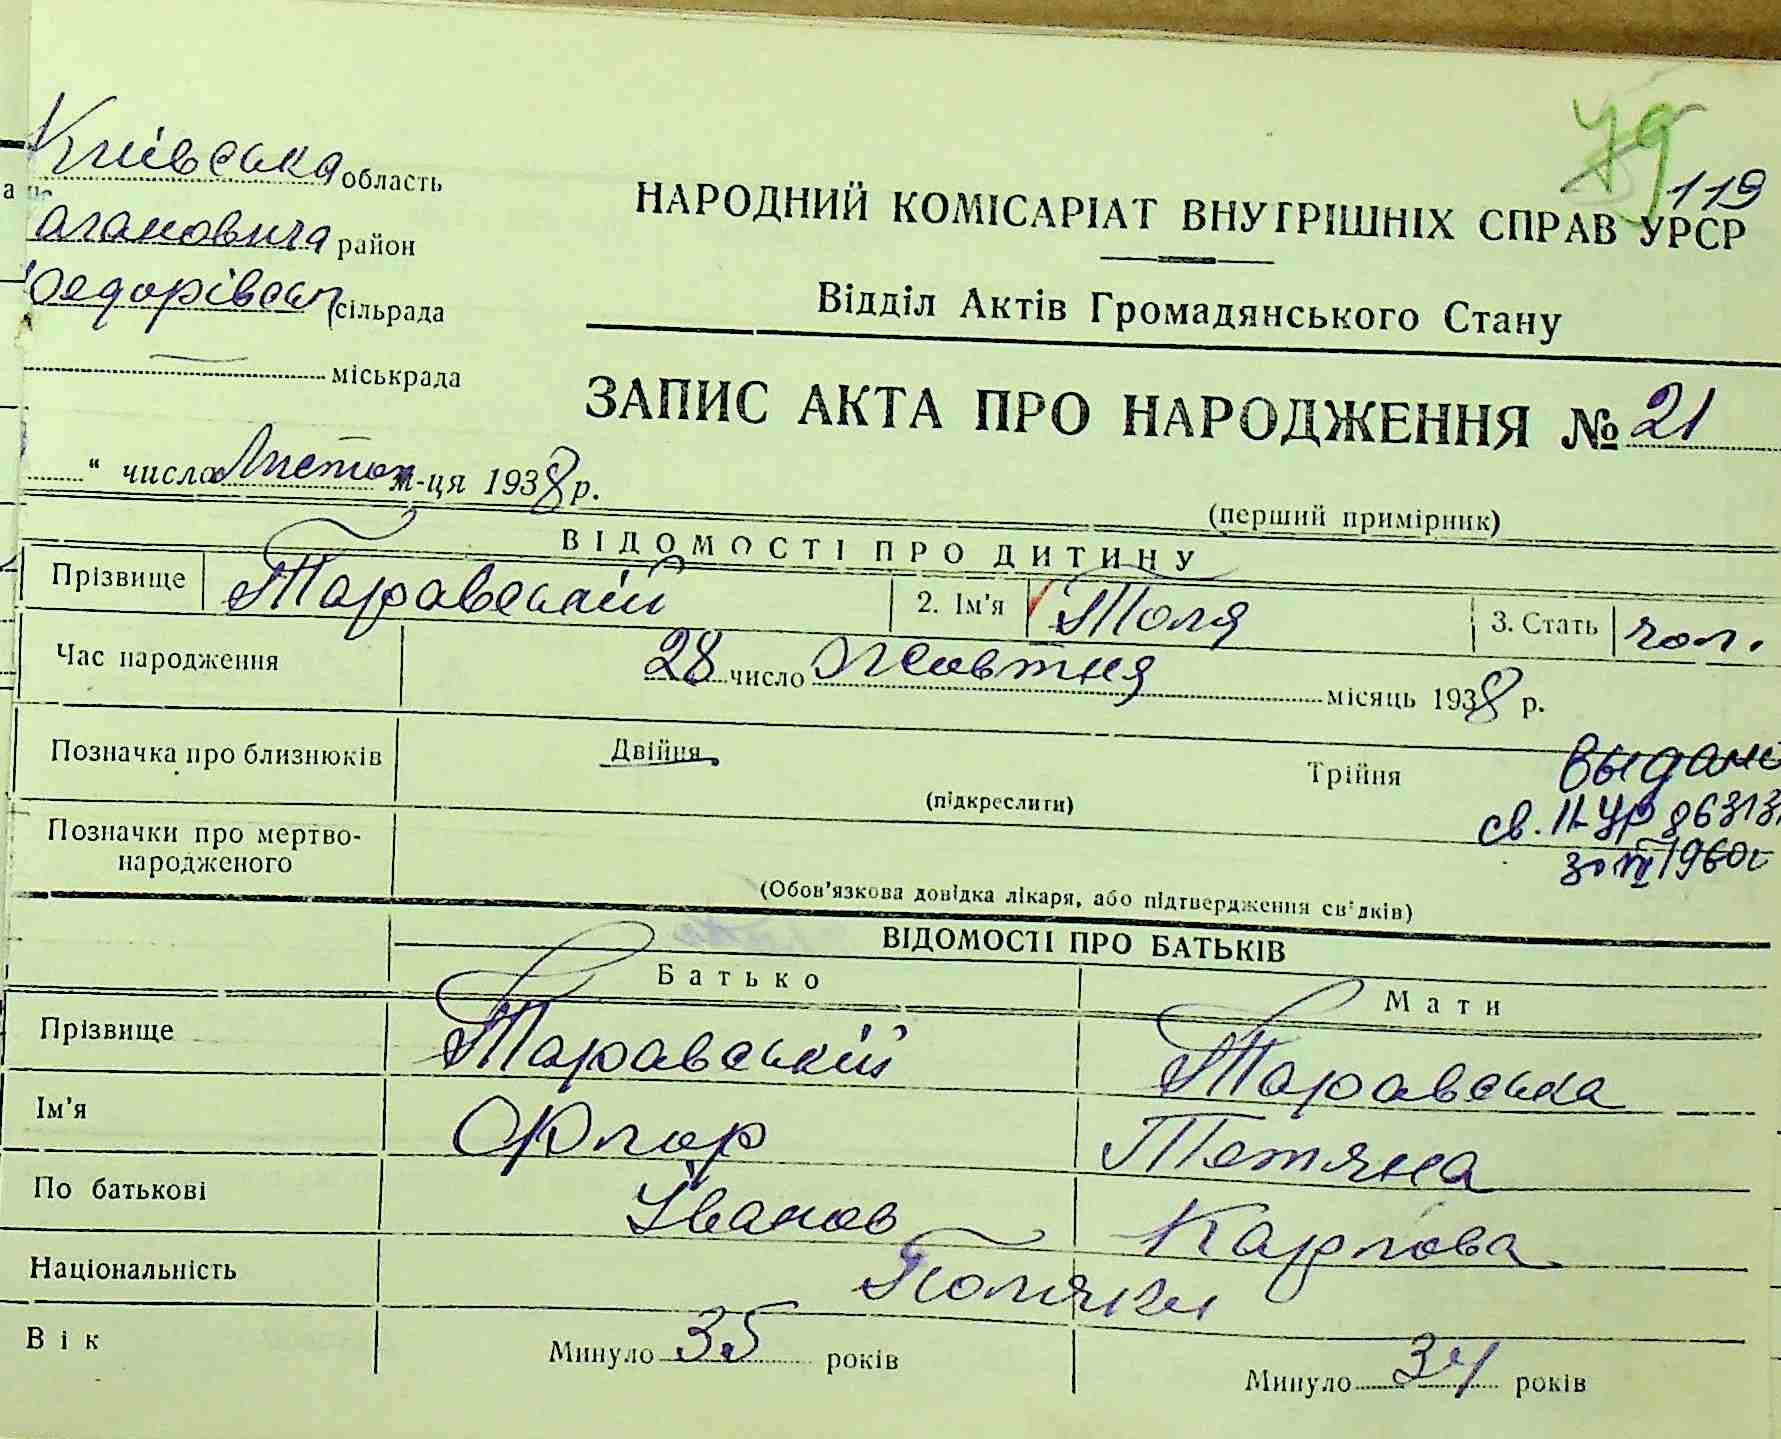 79
119
Київська область
НАРОДНИЙ КОМІСАРІАТ ВНУТРІШНІХ СПРАВ УРСР
агановича район
Відділ Актів Громадянського Стану
Федорівськ сільрада
міськрада
ЗАПИС АКТА ПРО НАРОДЖЕННЯ № 21
" число Листоп м-ця 1938 р.
(перший примірник)
ВІДОМОСТІ ПРО ДИТИНУ
Прізвище Таравський 2. Ім'я Толя 3. Стать чол.
Час народження 28 число Жовтня місяць 1938 р.
Позначка про близнюків Двійня Трійня
(підкреслити)
Выдано
св. II-УР 86313
30 1960г
Позначки про мертво-
народженого
(Обов'язкова довідка лікаря, або підтвердження свідків)
ВІДОМОСТІ ПРО БАТЬКІВ
Батько Мати
Прізвище Таравській Таравська
Ім'я Тетяна
По батькові Іванов Карпова
Національність Поляки
Вік Минуло 35 років Минуло 34 років